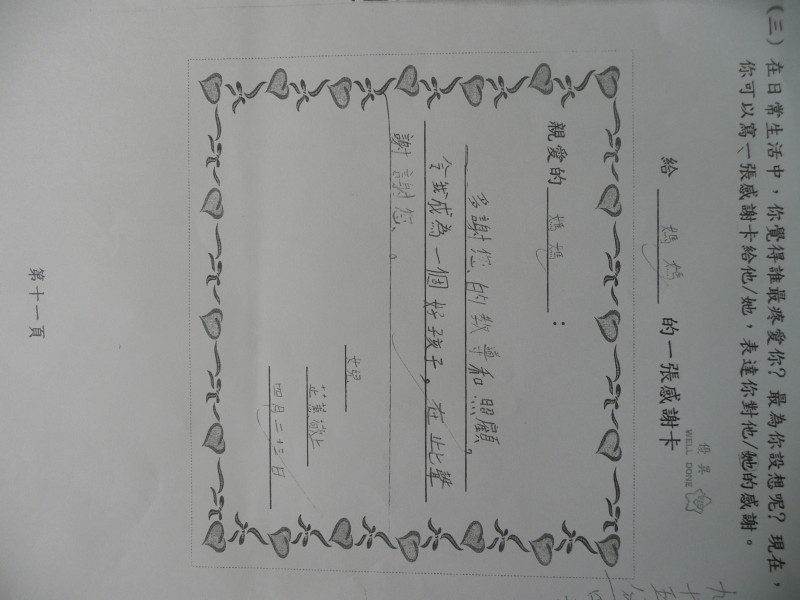 (三) 在日常生活中，你覺得誰最疼愛你？最為你設想呢？現在，
你可以寫一張感謝卡給他/她，表達你對他/她的感謝。
優異
WELL DONE
給 媽媽 的一張感謝卡
親愛的 媽媽：
多謝您的教導和照顧，
令我成為一個好孩子。在此聲
謝謝您。
女兒
敬上
四月二十三日
第十一頁